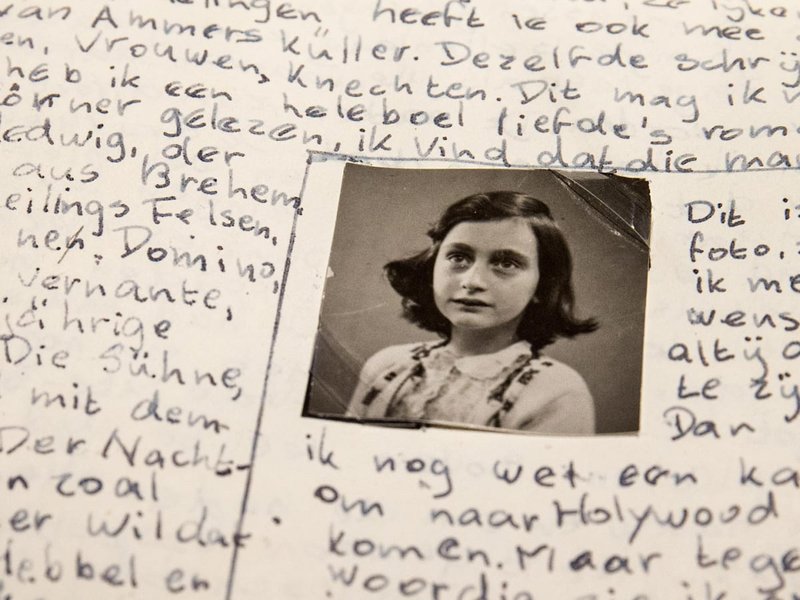 heeft ie ook mee
van Ammers Küller. Dezelfde schrij
en, Vrouwen, Knechten. Dit mag ik
heb ik een heleboel liefde's rom
örner gelezen, ik vind dat die ma
ledwig, der
aus Brehem,
eilings Felsen,
nen, Domino,
vernante,
jährige
Die Sühne,
mit dem
Der Nacht-
n zoal
er wil dat
lebbel en
Dit i
foto.
ik me
wens
altij
te zij
Dan
ik nog wet een ka
om naar Holywood
komen. Maar tege
woordig